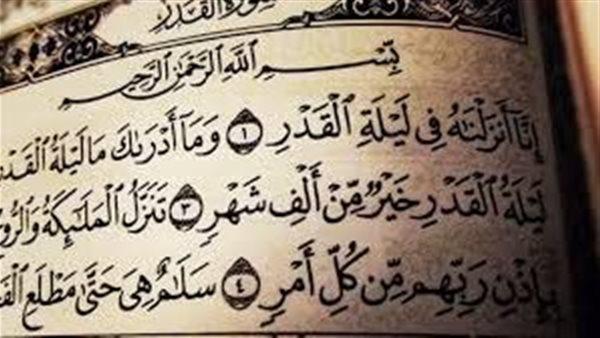 سُورَةُ الْقَدْرِ
بِسْمِ اللَّهِ الرَّحْمَٰنِ الرَّحِيمِ
إِنَّا أَنزَلْنَٰهُ فِي لَيْلَةِ الْقَدْرِ ١ وَمَا أَدْرَىٰكَ مَا لَيْلَةُ الْقَدْ
لَيْلَةُ الْقَدْرِ خَيْرٌ مِّنْ أَلْفِ شَهْرٍ ٣ تَنَزَّلُ الْمَلَٰئِكَةُ وَالرُّو
بِإِذْنِ رَبِّهِم مِّن كُلِّ أَمْرٍ ٤ سَلَٰمٌ هِيَ حَتَّىٰ مَطْلَعِ الْفَ